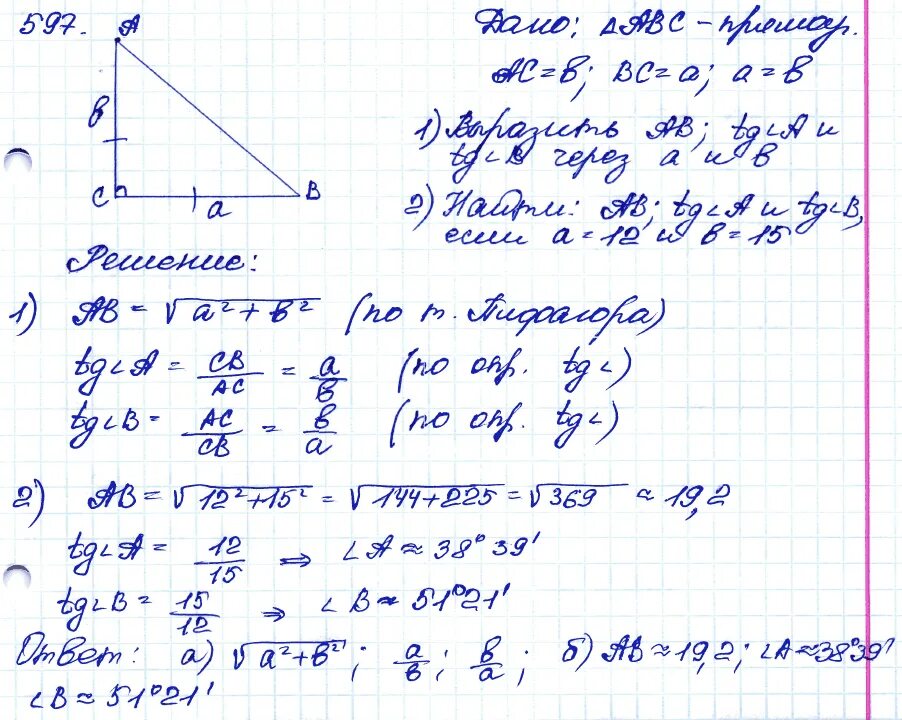 597.
A
в
C
a
B
Дано: △ABC - прямоуг.
AC = в; BC = a; a = в
1) Выразить AB; tg∠A и
tg∠B через a и в
2) Найти: AB; tg∠A и tg∠B,
если a = 12 и в = 15
Решение:
1) AB = √(a² + в²) (по т. Пифагора)
tg∠A = CB/AC = a/в (по опр. tg∠)
tg∠B = AC/CB = в/a (по опр. tg∠)
2) AB = √(12² + 15²) = √(144 + 225) = √369 ≈ 19,2
tg∠A = 12/15 ⇒ ∠A ≈ 38°39'
tg∠B = 15/12 ⇒ ∠B ≈ 51°21'
Ответ: а) √(a² + в²); a/в; в/a; б) AB ≈ 19,2; ∠A ≈ 38°39'
∠B ≈ 51°21'